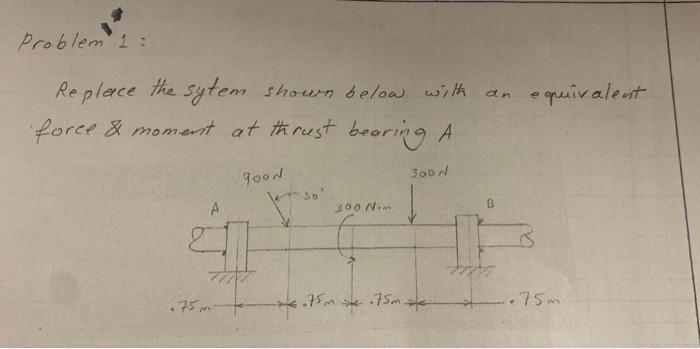 Problem 1:
Replace the sytem shown below with an equivalent
force & moment at thrust bearing A
900N
300N
30°
300 N.m
A
B
.75m
.75m
.75m
.75m